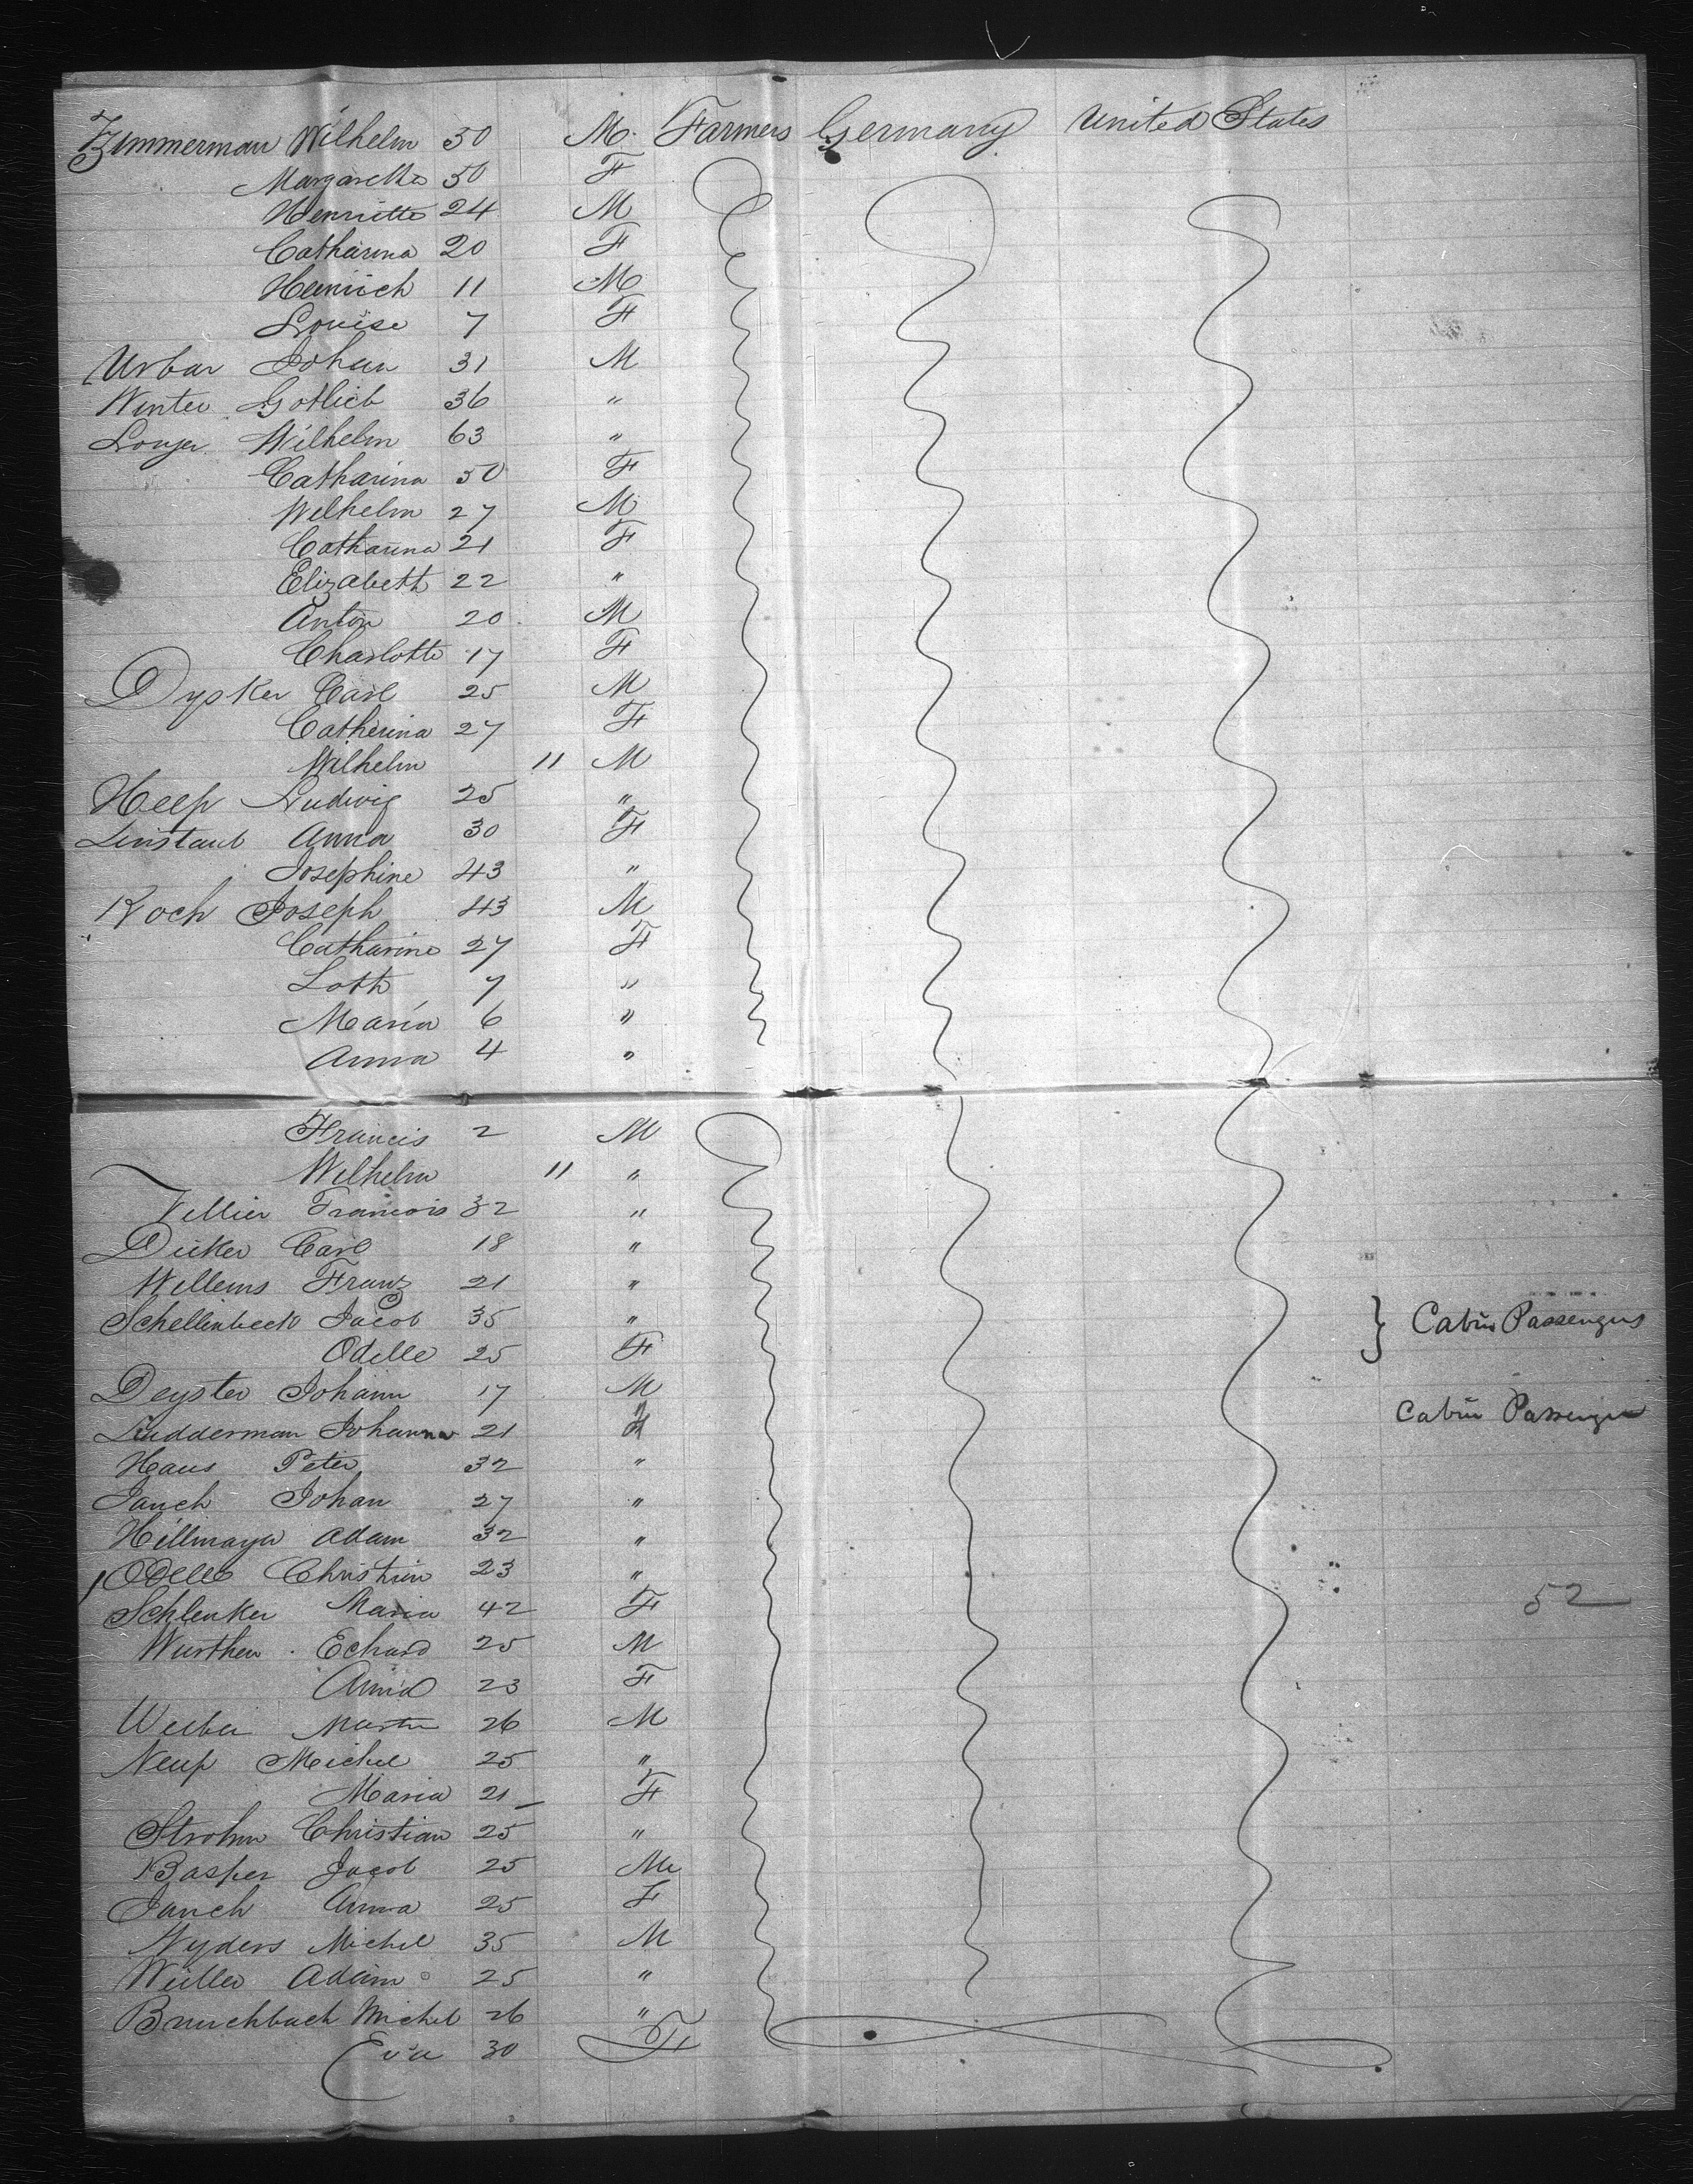 Zimmerman Wilhelm 50 M. Farmers Germany United States
Margaretha 50 F
Henriette 24 M
Catharina 20 F
Heinrich 11 M
Louise 7 F
Urbar Johan 31 M
Winter Gotlieb 36 "
Wilhelm 63 "
Catharina 50 F
Wilhelm 27 M
Catharina 21 F
Elizabeth 22 "
Anton 20 M
Charlotte 17 F
Dysker Carl 25 M
Catherina 27 F
Wilhelm 11 M
Heep Ludwig 25 "
Linstaub Anna 30 F
Josephine 43 "
Koch Joseph 43 M
Catharine 27 F
Loth 7 "
Maria 6 "
Anna 4 "
Francis 2 M
Wilhelm 11 "
Villier Francois 32 "
Dicker Carl 18 "
Willems Franz 21 "
Schellenbeck Jacob 35 " } Cabin Passengers
Odelle 25 F
Deyster Johann 17 M
Ludderman Johanna 21 F Cabin Passenger
Haus Peter 32 "
Janch Johan 27 "
Hillmayer Adam 32 "
Odelle Christian 23 "
Schlenker Maria 42 F 52
Wurthen Echard 25 M
Anna 23 F
Weiber Martin 26 M
Neup Michel 25 "
Maria 21 F
Strohm Christian 25 "
Basper Jacob 25 M
Janch Anna 25 F
Nyders Michel 35 M
Wuller Adam 25 "
Michel 26 "
Eva 30 F